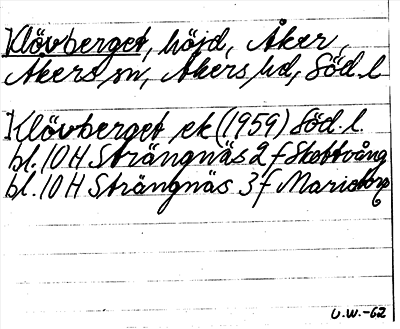 Klövberget, höjd, Åker,
Åkers sn, Åkers hd, Söd. l.
Klövberget ek (1959) Söd. l.
bl. 10 H Strängnäs 2 f Skottvång
bl. 10 H Strängnäs 3 f Mariedorp
U.W.-62